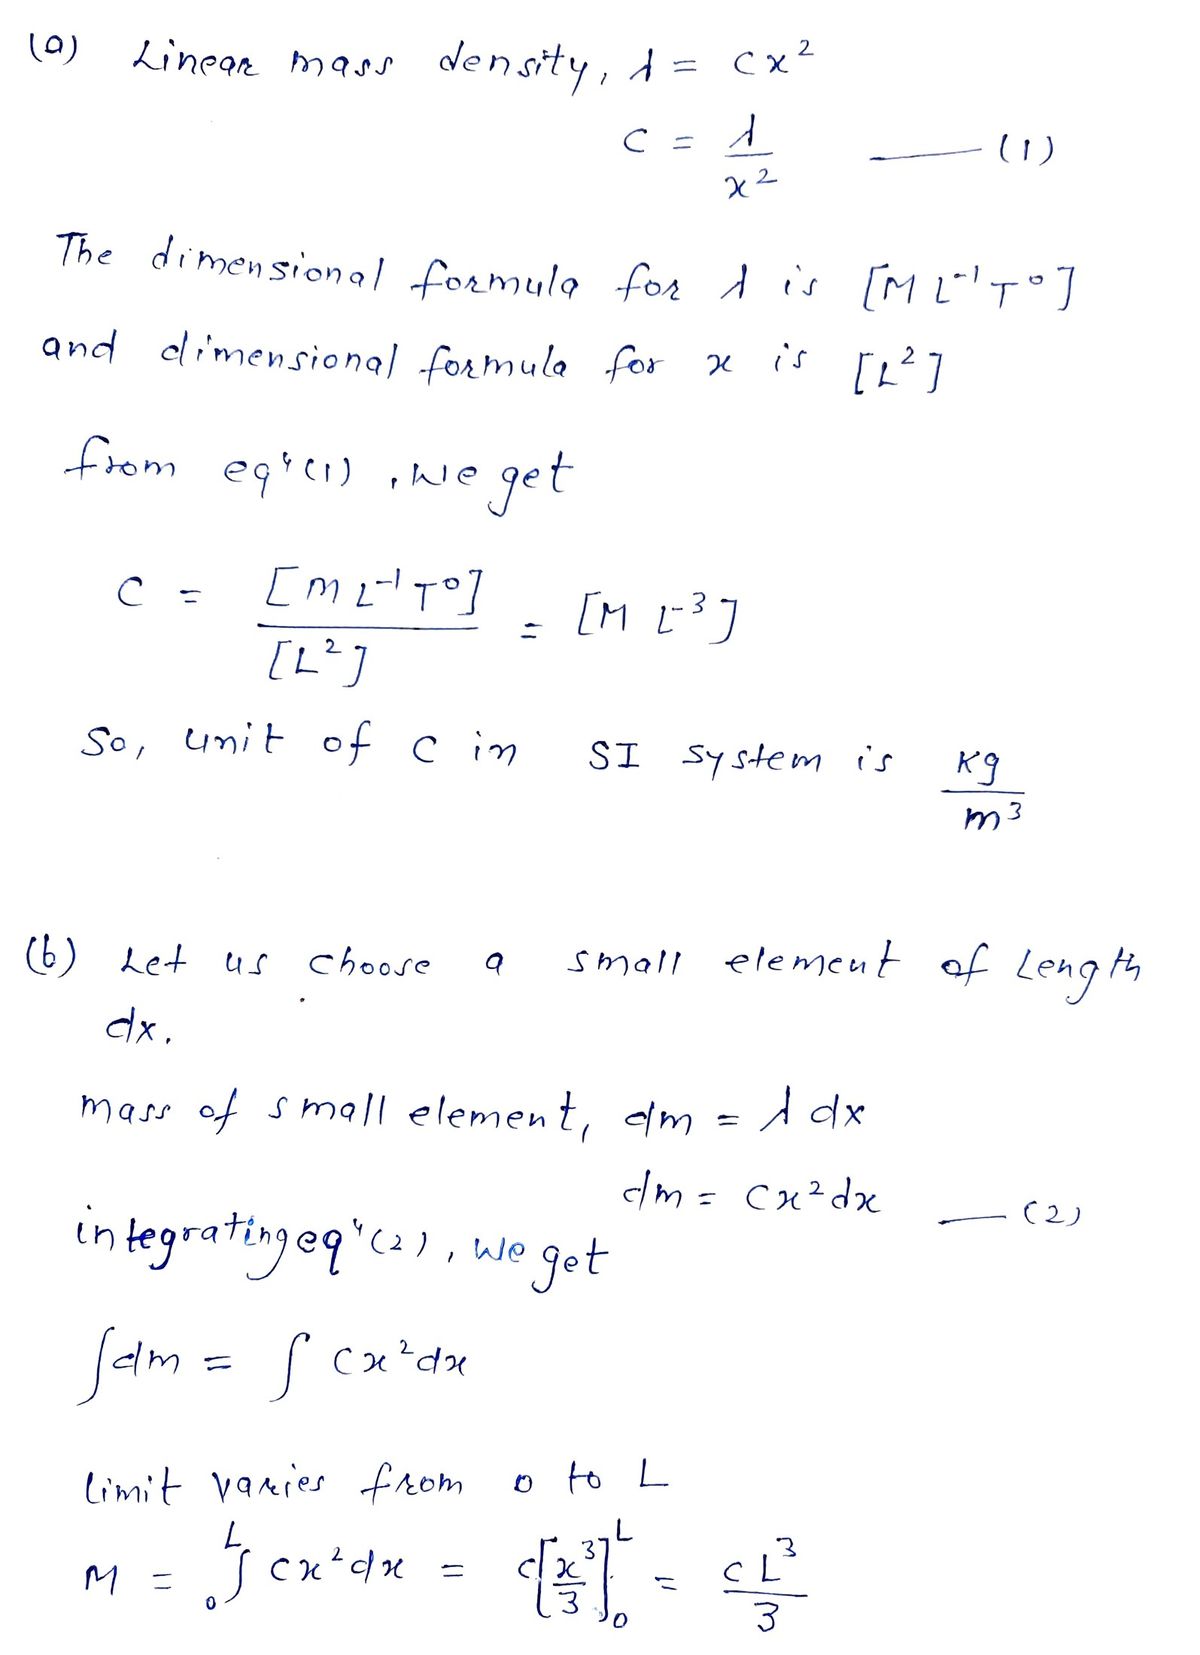 (a) Linear mass density, λ = cx²
C = λ / x² —— (1)
The dimensional formula for λ is [M L⁻¹ T⁰]
and dimensional formula for x is [L²]
from eqⁿ (1), we get
C = [M L⁻¹ T⁰] / [L²] = [M L⁻³]
So, unit of C in SI system is Kg / m³
(b) Let us choose a small element of Length
dx.
mass of small element, dm = λ dx
dm = Cx² dx —— (2)
integrating eqⁿ (2), we get
∫dm = ∫ Cx² dx
limit varies from 0 to L
M = ₀∫ᴸ Cx² dx = c[x³/3]₀ᴸ = CL³ / 3